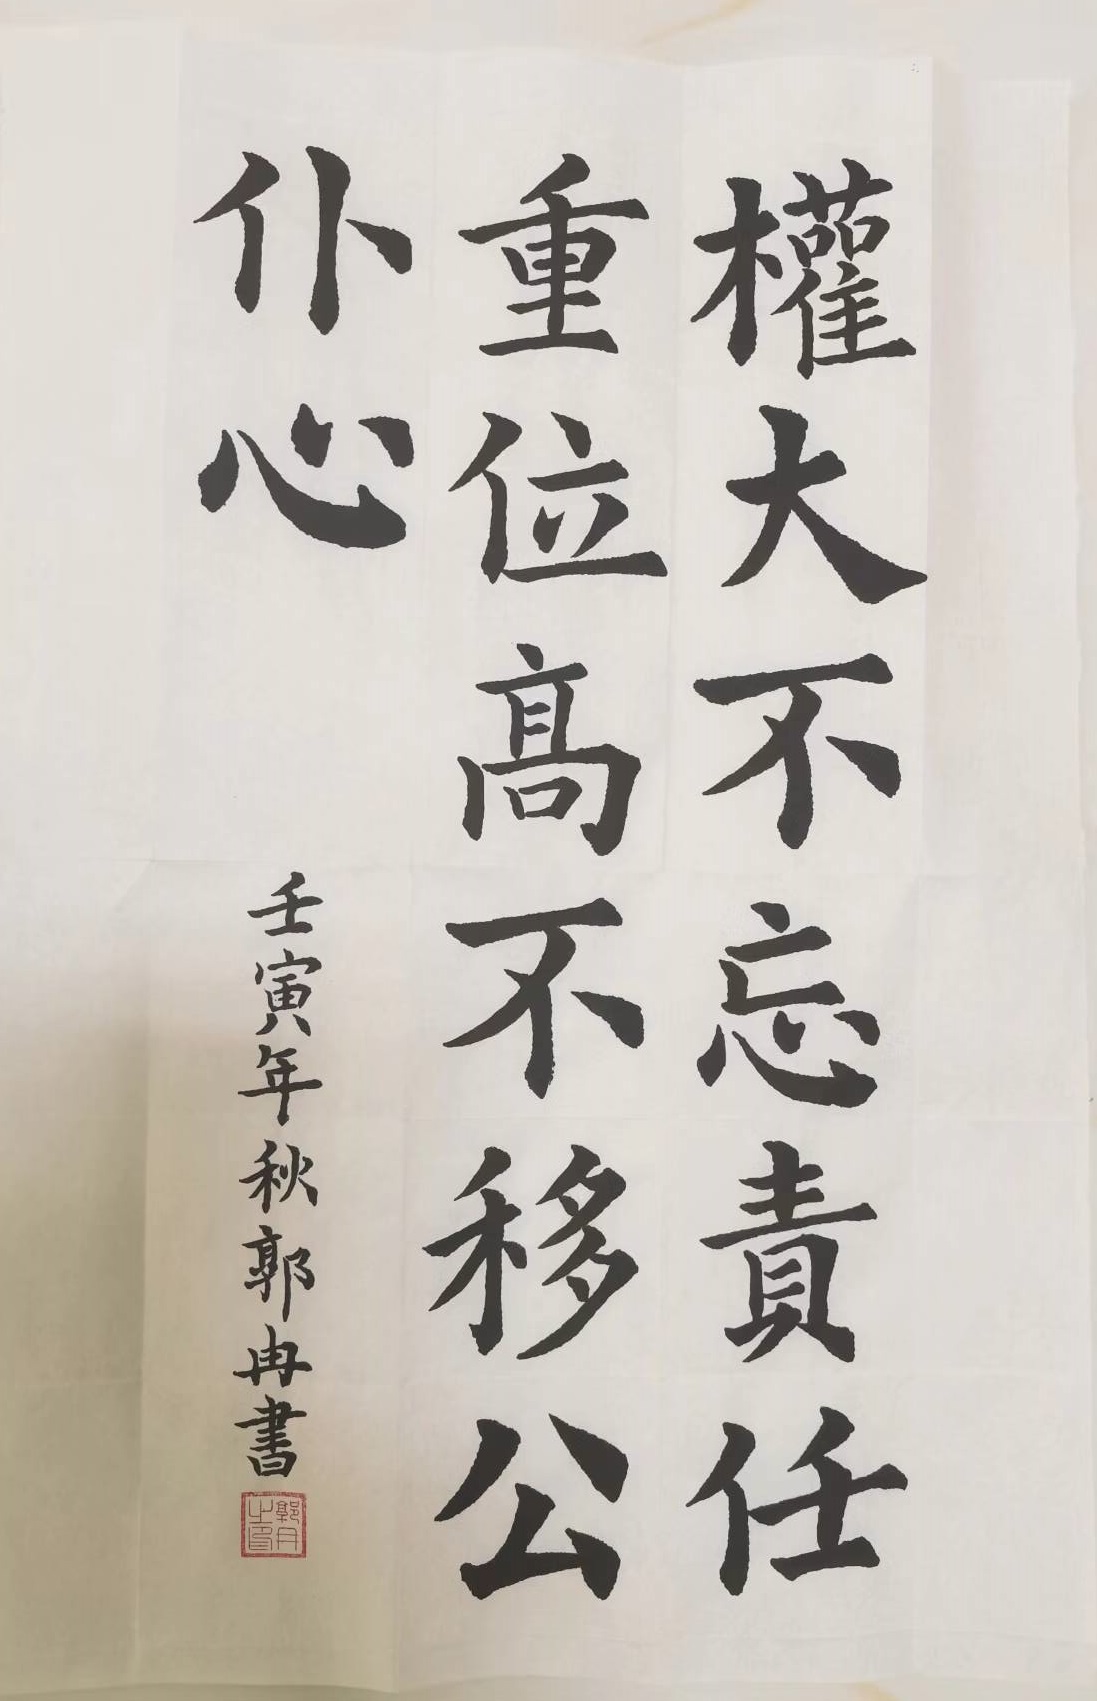 權大不忘責任
重位髙不移公
仆心
壬寅年秋郭冉書
郭冉之印